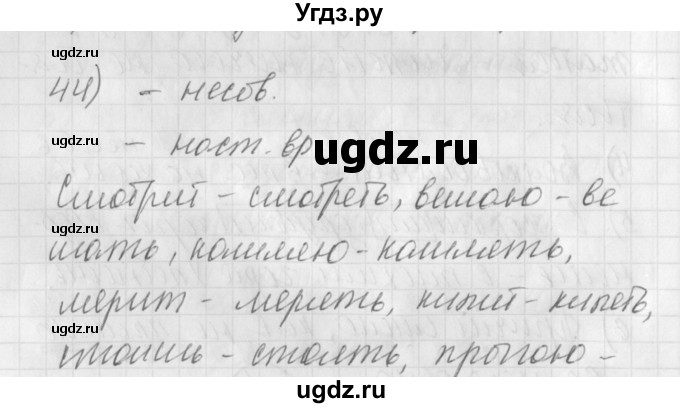 Угдз.ру
ugdz.ru
44) - несов.
ugdz.ru
- наст. вр
ugdz.ru
Смотрит - смотреть, вешаю - ве
ugdz.ru
шать, кашляю - кашлять,
мерит - мерять, кипит - кипеть,
ugdz.ru
стоишь - стоять, прыгаю -
ugdz.ru